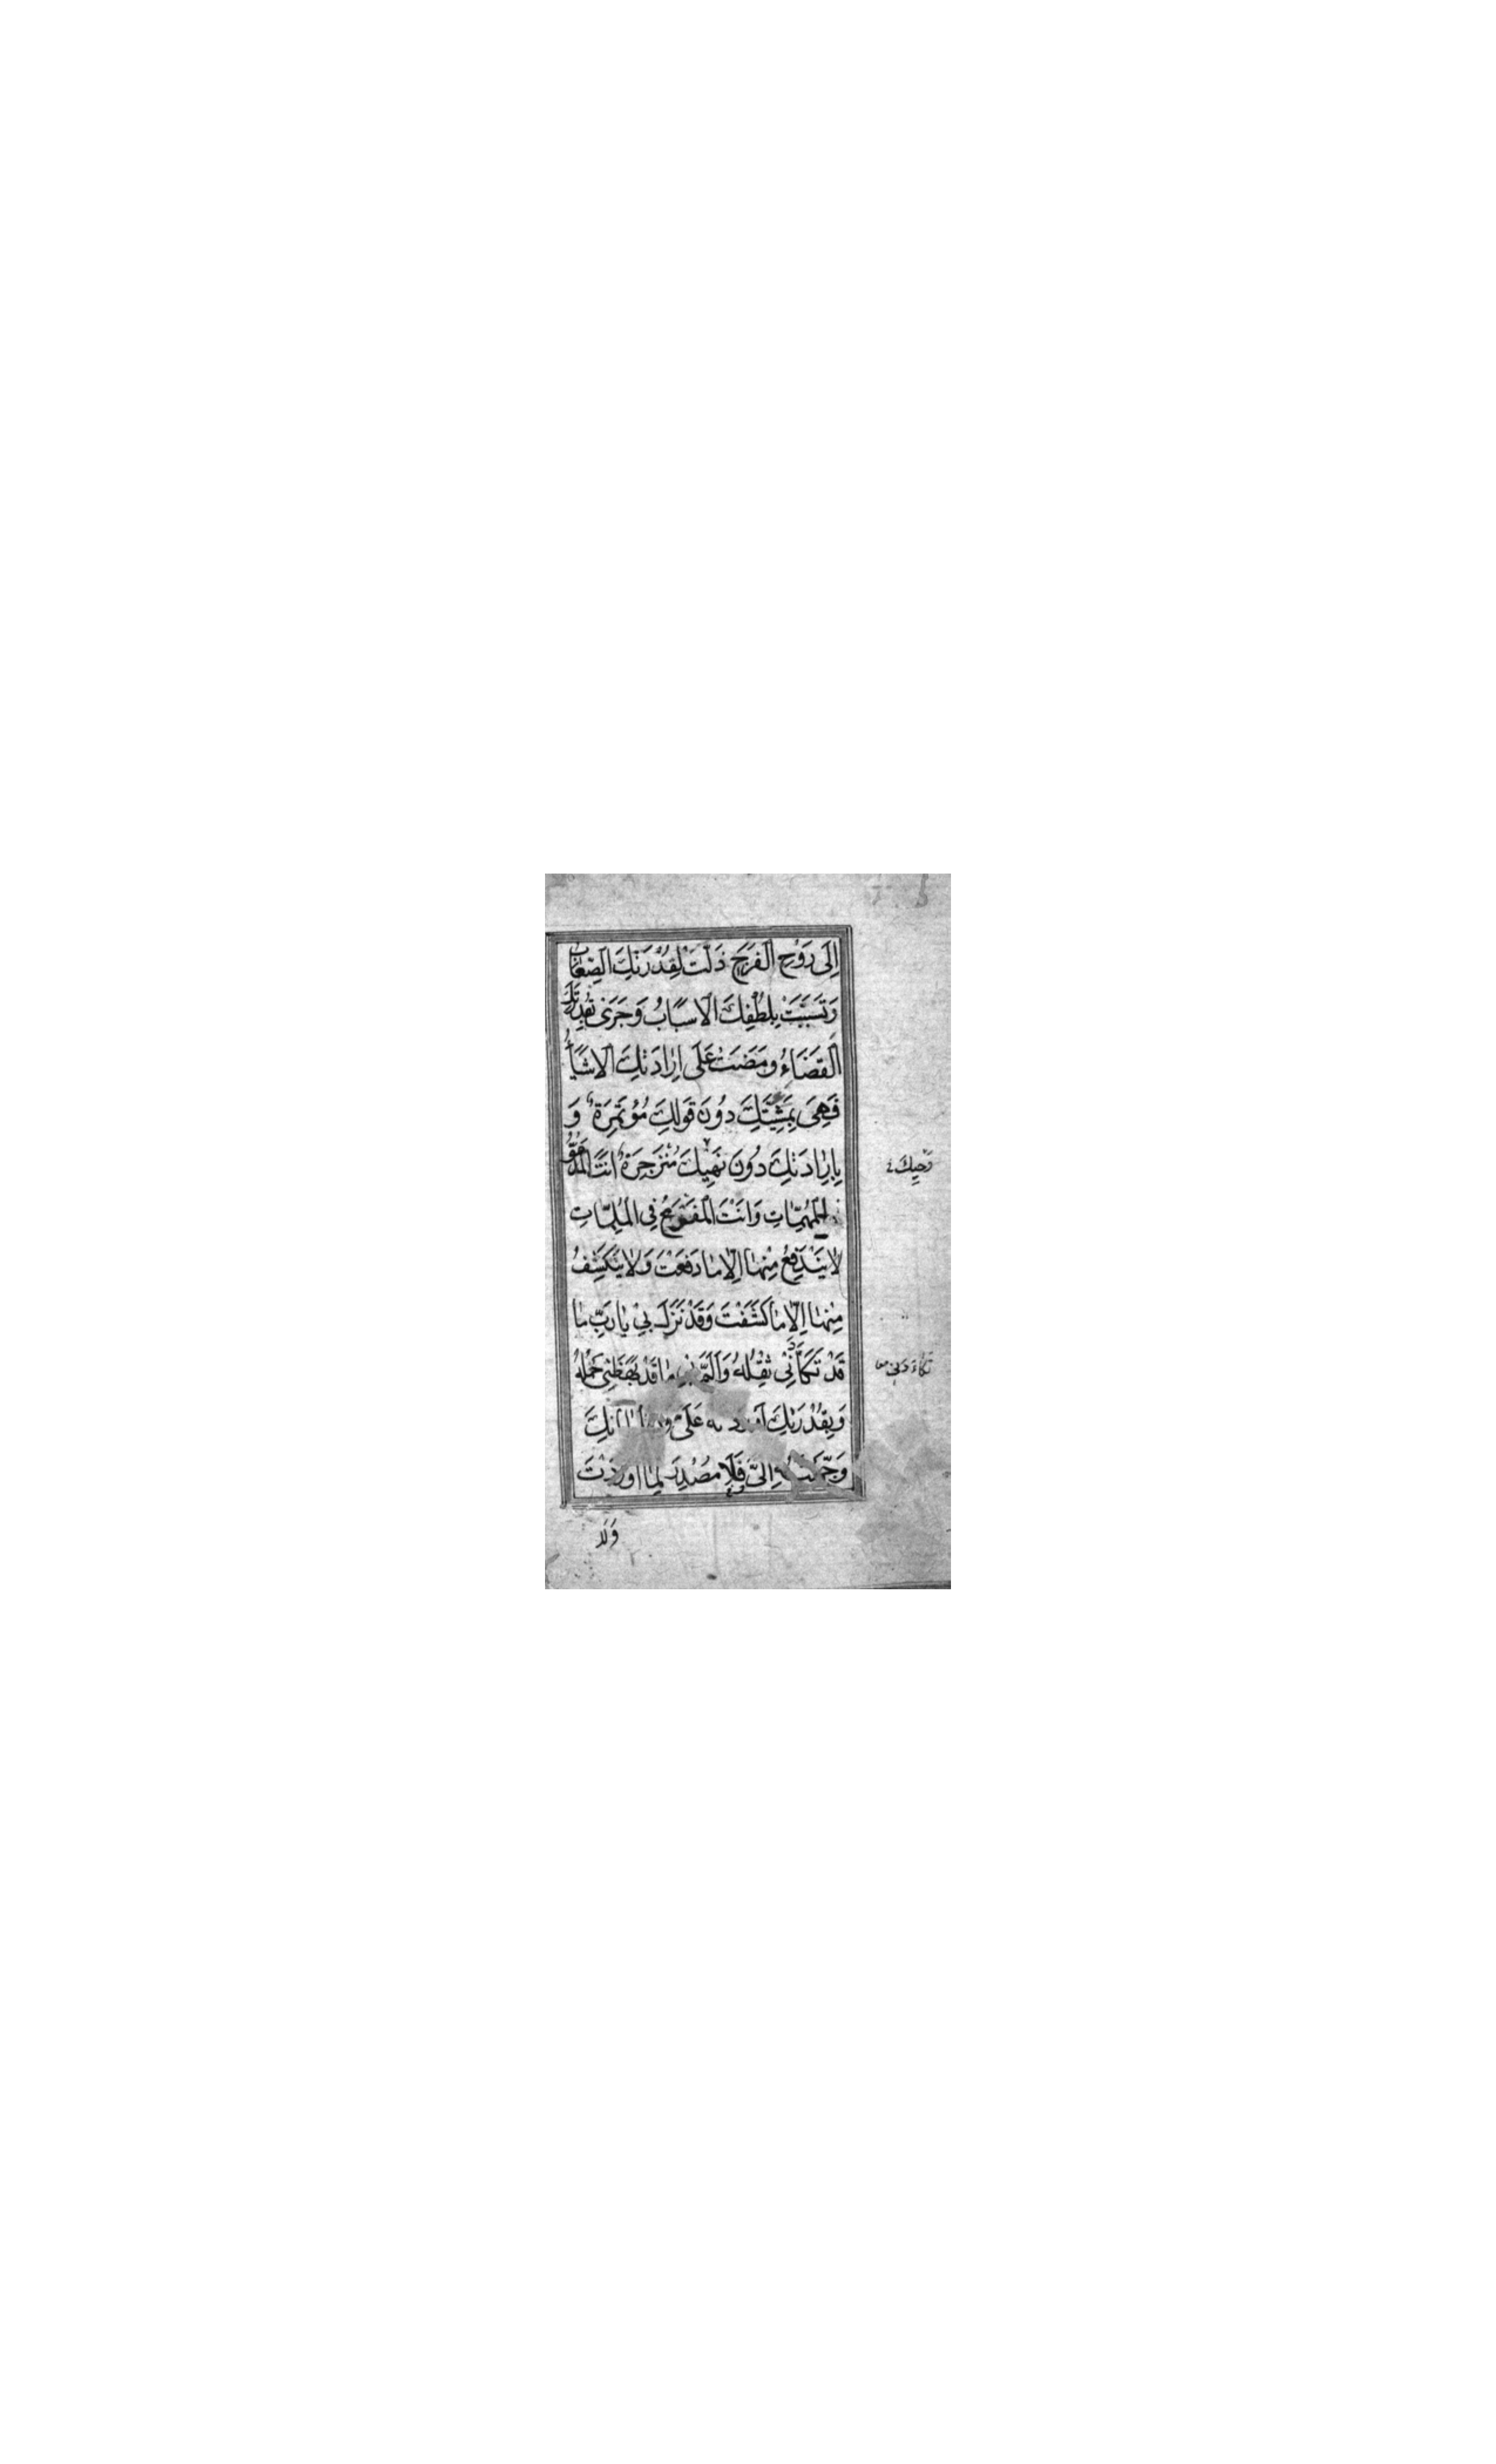 اِلَى رَوْحِ الْفَرَجِ ذَلَّتْ لِقُدْرَتِكَ الصِّعَابُ
وَتَسَبَّبَتْ بِلُطْفِكَ الْاَسْبَابُ وَجَرَى بِقُدْرَتِكَ
الْقَضَاءُ وَمَضَتْ عَلَى اِرَادَتِكَ الْاَشْيَاءُ
فَهِيَ بِمَشِيَّتِكَ دُونَ قَوْلِكَ مُؤْتَمِرَةٌ وَ
بِاِرَادَتِكَ دُونَ نَهْيِكَ مُنْزَجِرَةٌ اَنْتَ الْمَدْعُوُّ
وَحْيِكَ
لِلْمُهِمَّاتِ وَاَنْتَ الْمَفْزَعُ فِي الْمُلِمَّاتِ
لَا يَنْدَفِعُ مِنْهَا اِلَّا مَا دَفَعْتَ وَلَا يَنْكَشِفُ
مِنْهَا اِلَّا مَا كَشَفْتَ وَقَدْ نَزَلَ بِي يَا رَبِّ مَا
قَدْ تَكَأَّدَنِي ثِقْلُهُ وَاَلَمَّ بِي مَا قَدْ بَهَظَنِي حَمْلُهُ
تَكَاءَدَنِي
وَبِقُدْرَتِكَ عَلَيَّ
اِلَيَّ فَلَا مُصْدِرَ لِمَا اَوْرَدْتَ
وَلَا